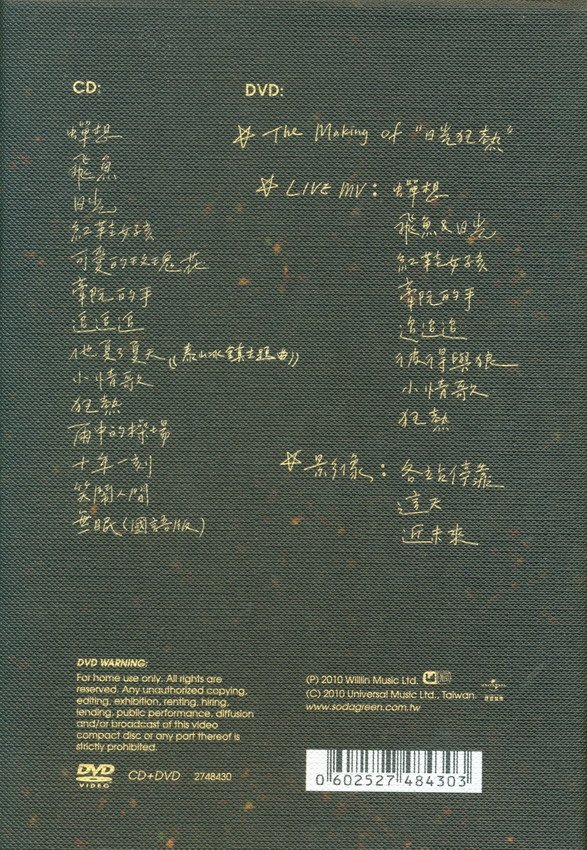 CD:
蟬想
飛魚
日光
紅鞋女孩
可愛的玫瑰花
牽阮的手
追追追
他夏了夏天((泰山冰鎮主題曲))
小情歌
狂熱
雨中的操場
十年一刻
笑鬧人間
無眠(國語版)
DVD:
☆ The Making of "日光狂熱"
☆ LIVE MV: 蟬想
飛魚&日光
紅鞋女孩
牽阮的手
追追追
彼得與狼
小情歌
狂熱
☆ 影像: 各站停靠
這天
近未來
DVD WARNING:
For home use only. All rights are
reserved. Any unauthorized copying,
editing, exhibition, renting, hiring,
lending, public performance, diffusion
and/or broadcast of this video
compact disc or any part thereof is
strictly prohibited.
DVD VIDEO CD+DVD 2748430
(P) 2010 Willlin Music Ltd.
(C) 2010 Universal Music Ltd., Taiwan.
www.sodagreen.com.tw
0 602527 484303